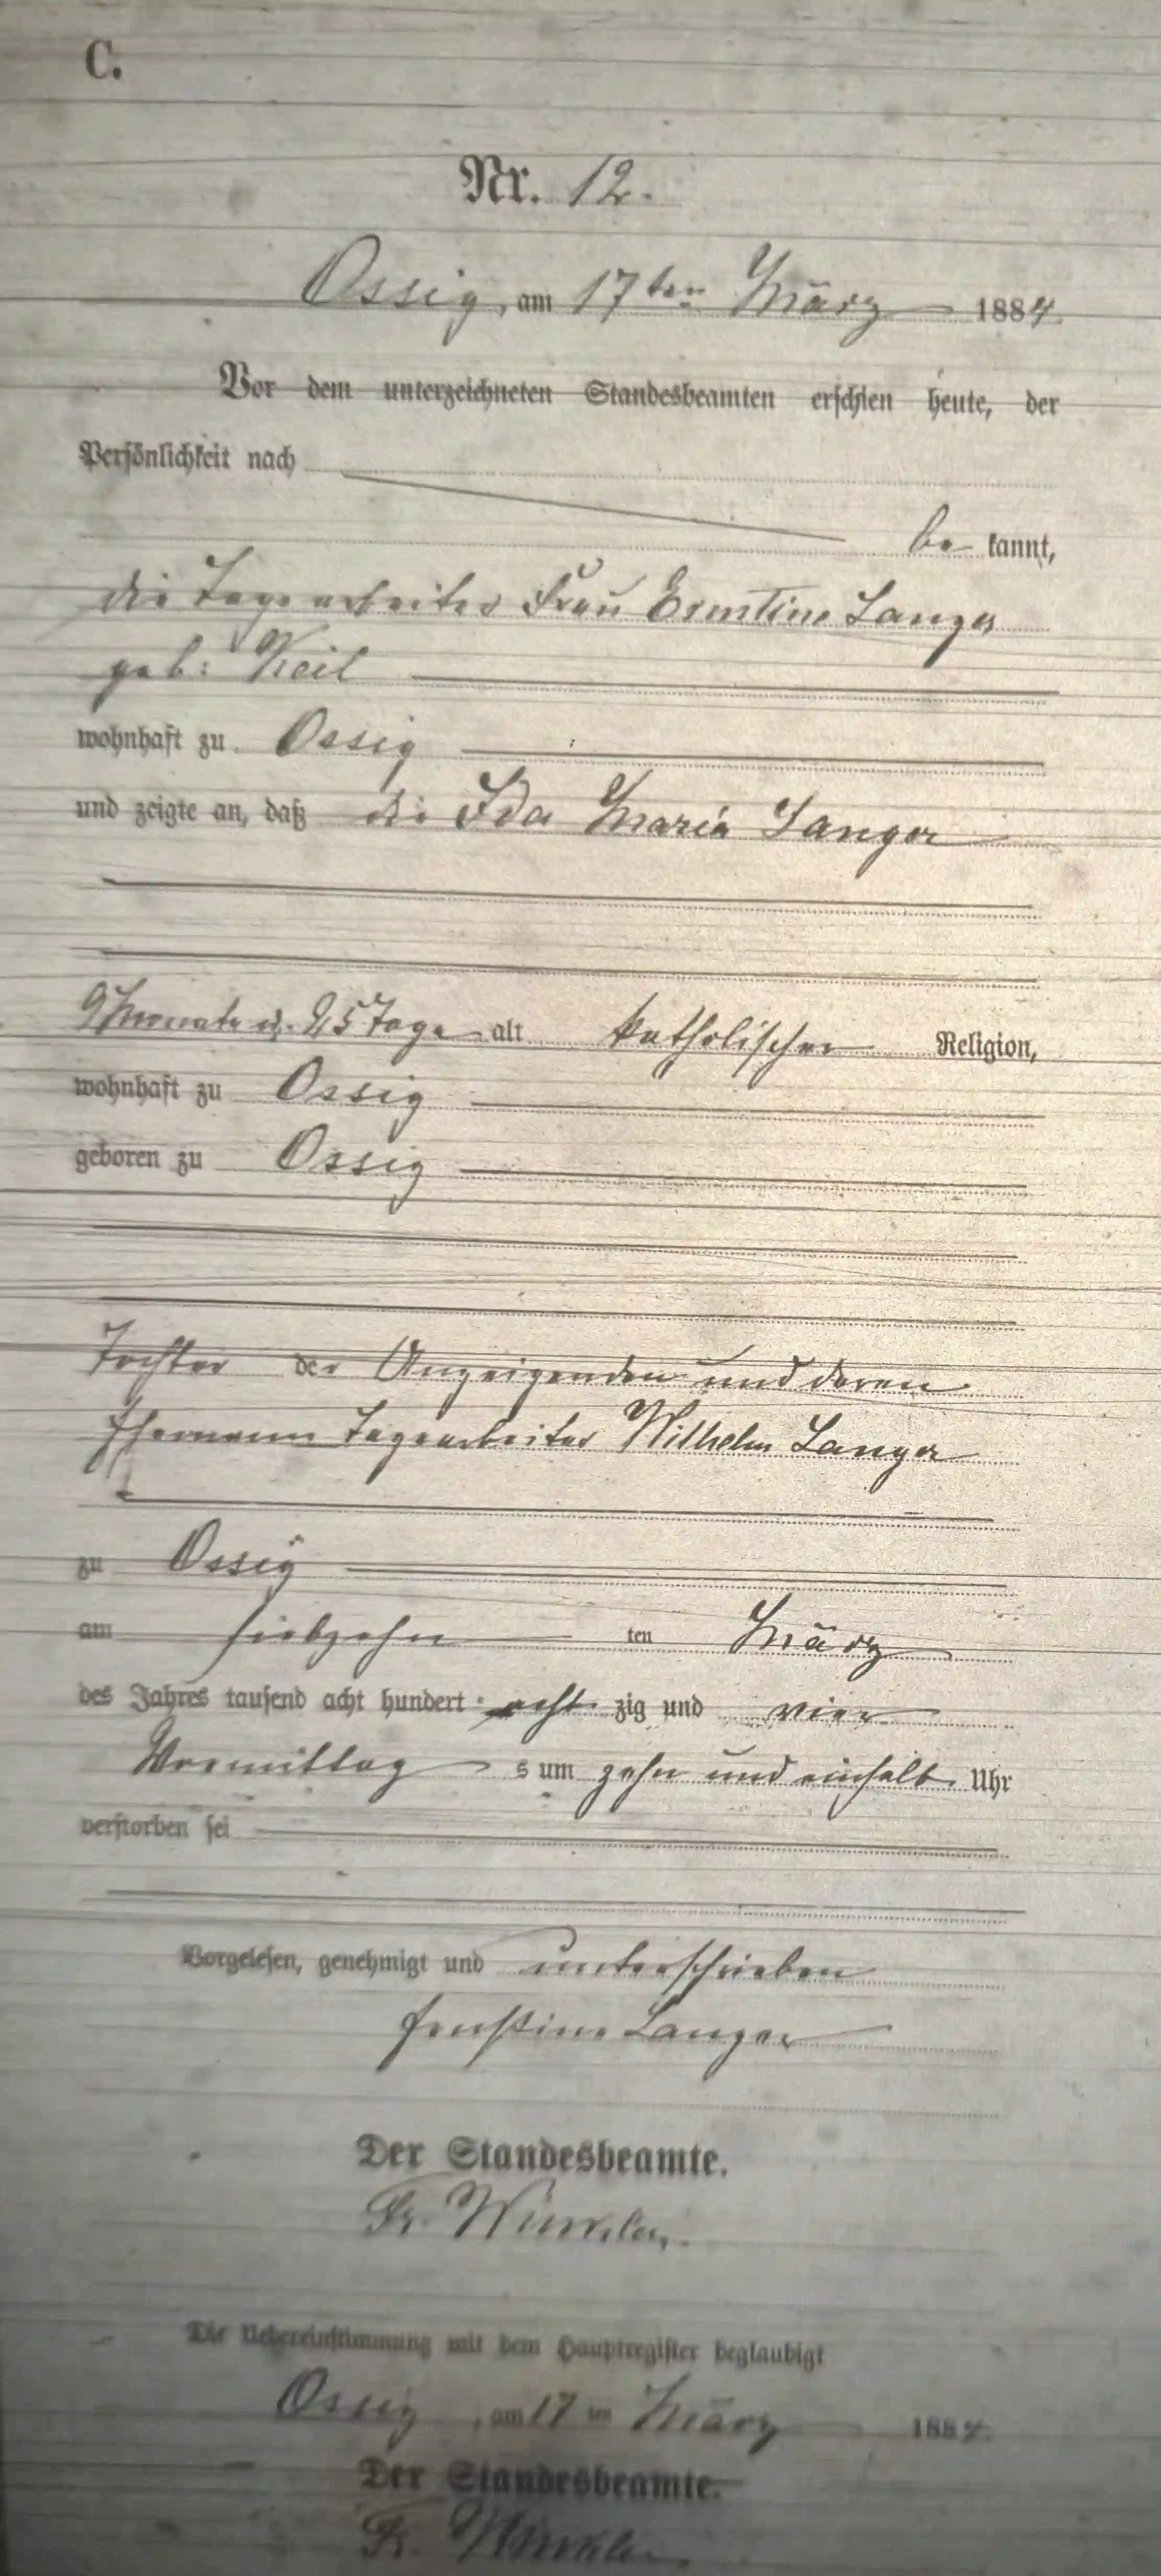 C.
Nr. 12.
Ossig, am 17ten März 1884.
Vor dem unterzeichneten Standesbeamten erschien heute, der
Persönlichkeit nach
be kannt,
die Tagearbeiter Frau Ernstine Langer
geb: Keil
wohnhaft zu Ossig
und zeigte an, daß die Ida Maria Langer
9 Monate u. 25 Tage alt katholischer Religion,
wohnhaft zu Ossig
geboren zu Ossig
Tochter der Anzeigenden und deren
Ehemann Tagearbeiter Wilhelm Langer
zu Ossig
am siebzehn ten März
des Jahres tausend acht hundert acht zig und vier
Vormittag s um zehn und einhalb Uhr
verstorben sei
Vorgelesen, genehmigt und unterschrieben
Ernstine Langer
Der Standesbeamte.
Fr. Winkler.
Die Uebereinstimmung mit dem Hauptregister beglaubigt
Ossig, am 17 ten März 1884.
Der Standesbeamte.
Fr. Winkler